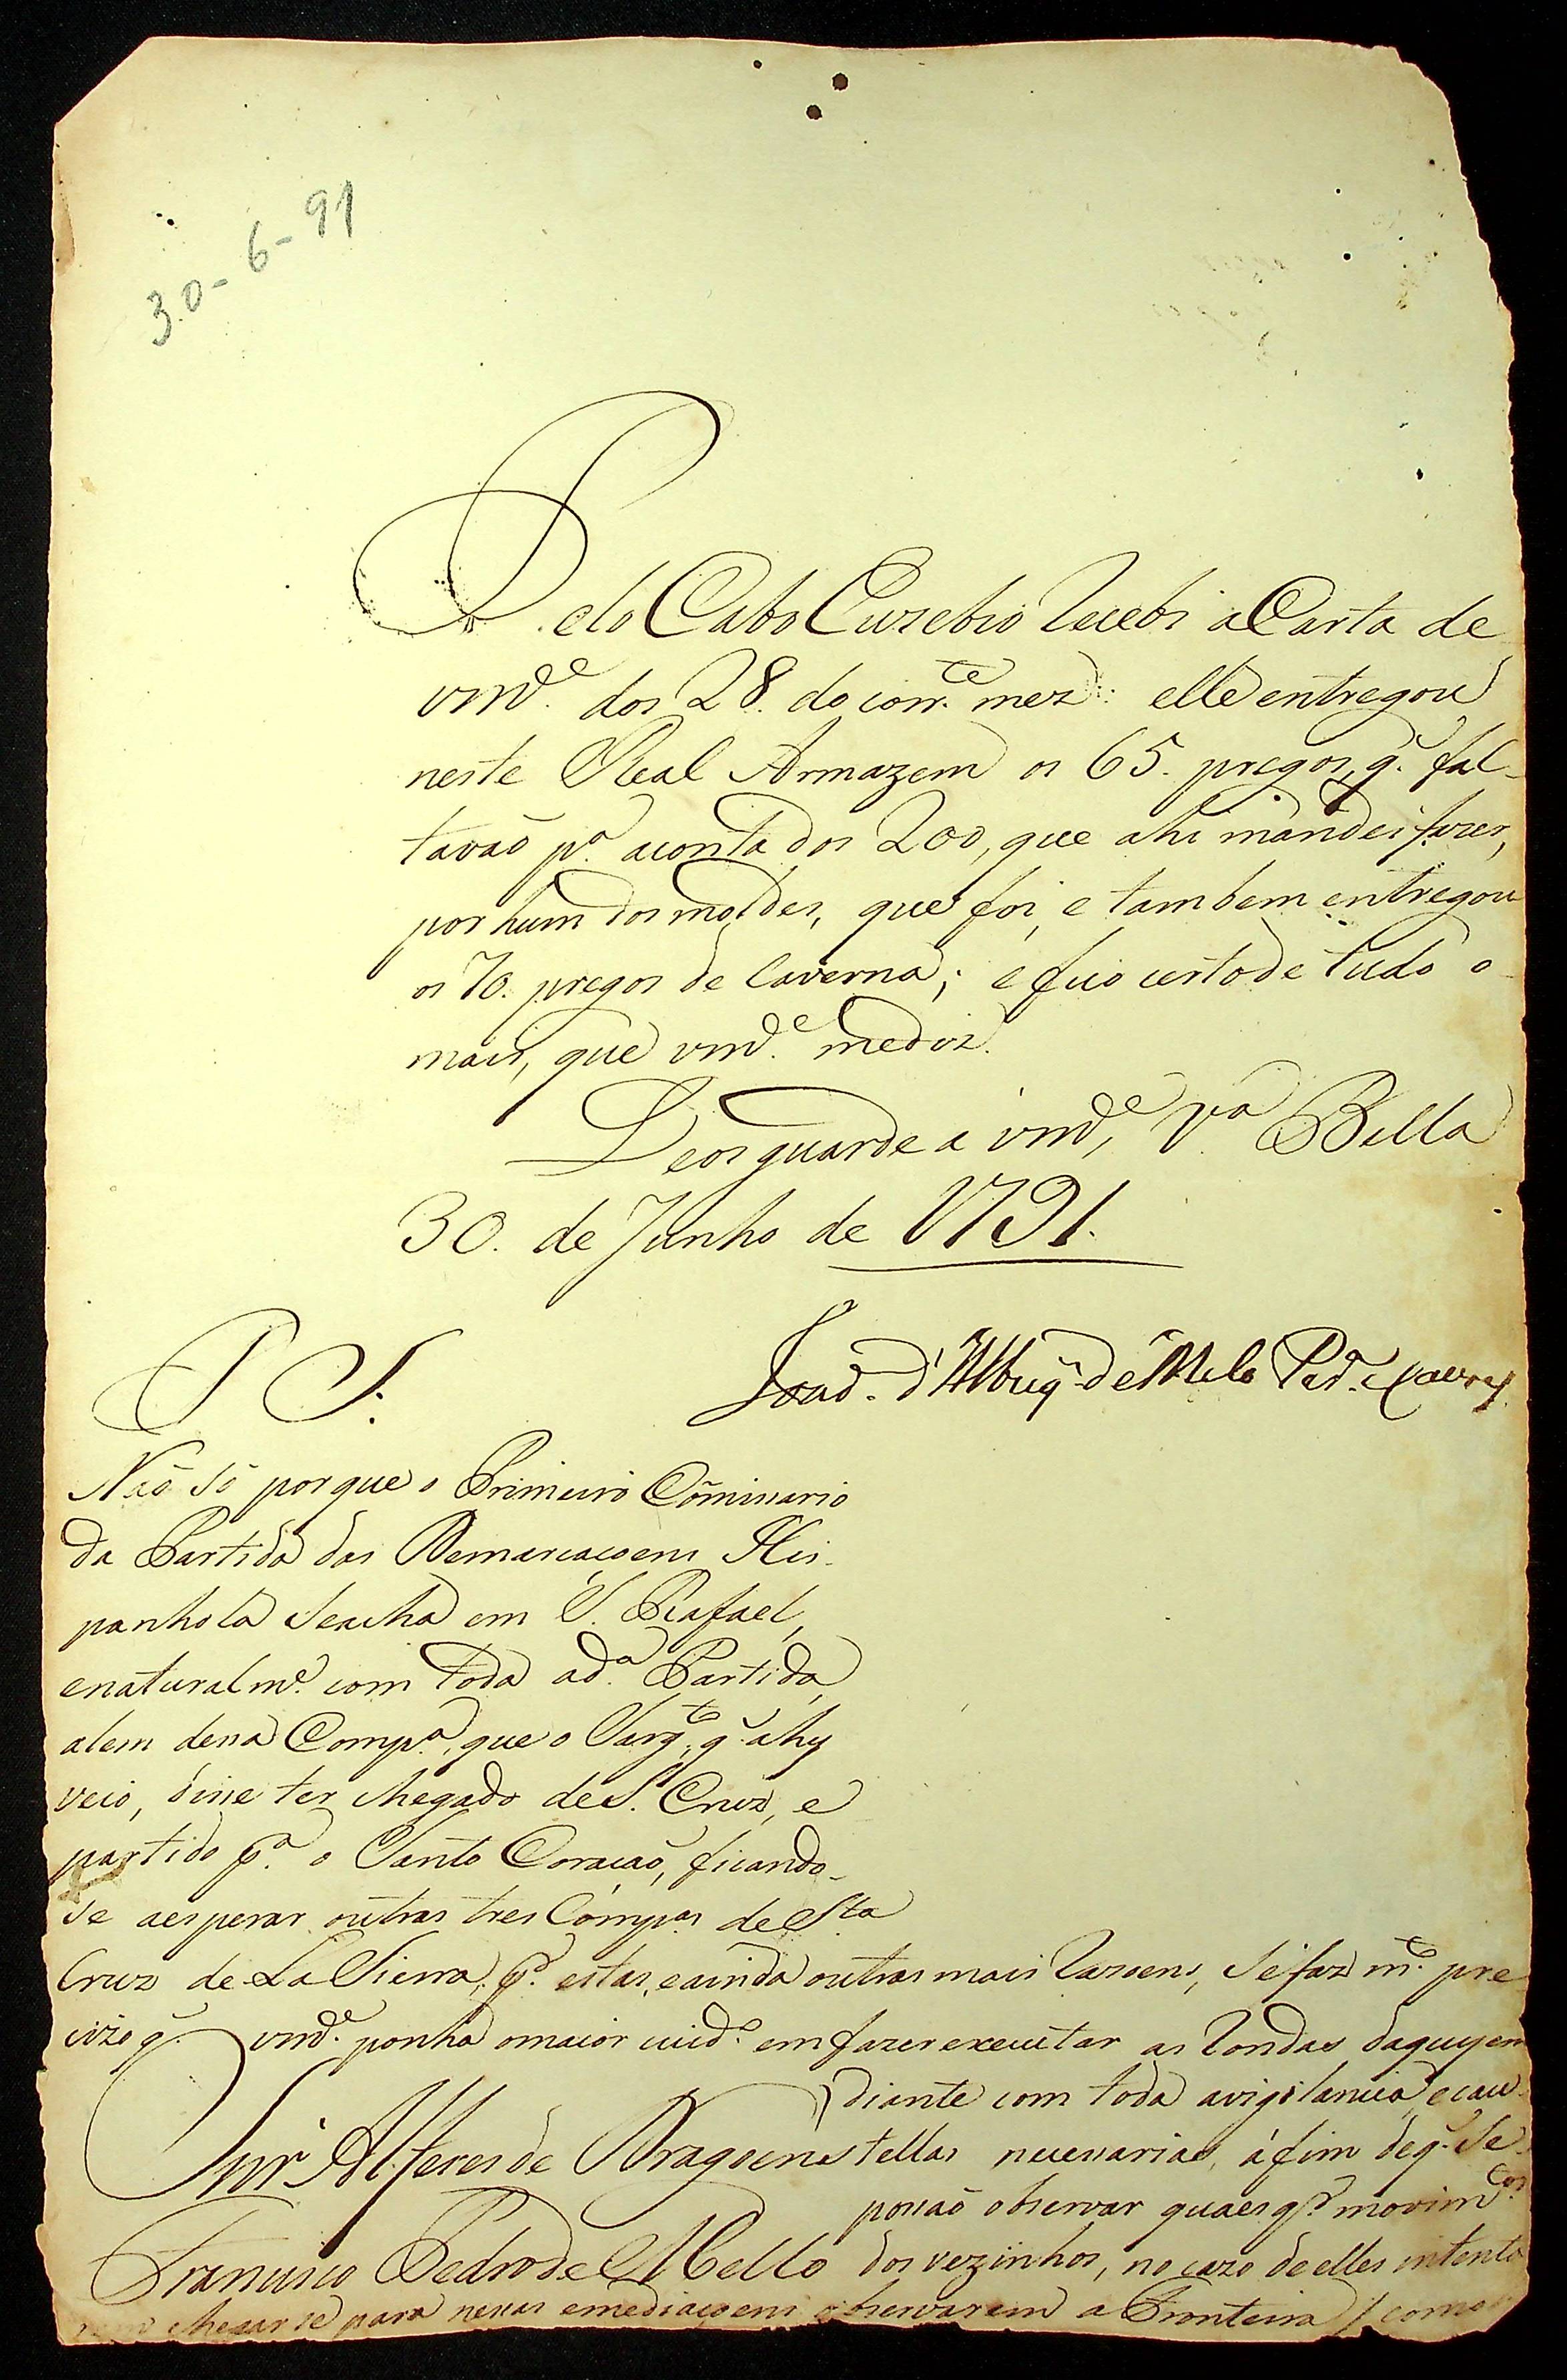 30-6-91
Pelo Cabo Euzebio recebi a Carta de
vm.ce dos 28. do corr.te mez: elle entregou
neste Real Armazem os 65. pregos, q. fal-
tavaõ p.a aconta dos 200, que ahi mandei fazer,
por hum dos moldes, que foi, e tambem entregou
os 70. pregos de Caverna; e fico certo de tudo o
mais, que vm.ce mediz.
Deos guarde a vm.ce V.a Bella
30. de Junho de 1791.
Joaõ d'Albuq. de Mello Per.a Caceres
P S.
Naõ só porque o Primeiro Cõmissario
da Partida das Demarcaçoens His-
panhola seacha em S. Rafael,
enaturalm.e com toda ad.a Partida,
alem dessa Comp.a, que o Sarg.to, q. ahy
veio, disse ter chegado de S. Cruz, e
partido p.a o Santo Coraçaõ, ficando-
se aesperar outras tres Comp.as de S.ta
Cruz de La Sierra; p.r estas, eainda outras mais razoens, sefaz m.to pre
cizo q. vm.ce ponha omaior cuid.o emfazer executar as rondas daquy em
diante com toda avigilancia, ecau-
Snr. Alferes de Dragoens
tellas necessarias, áfim deq. se
possaõ observar quaesq.r movim.tos
Francisco Pedro de Mello
dos vezinhos, no cazo de elles intenta
rem chegarse para nessas emediaçoens observarem a Fronteira / como